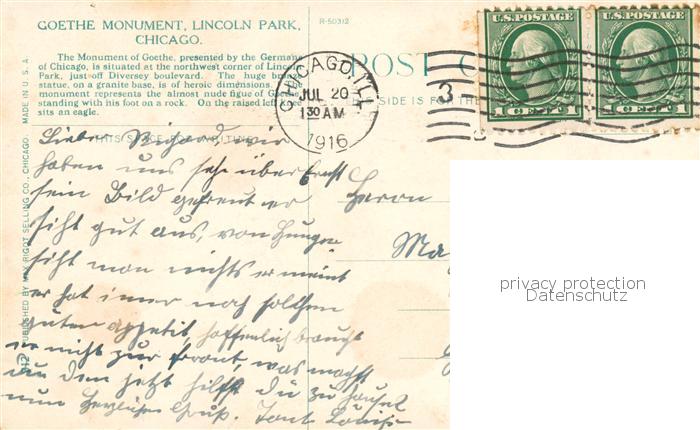 GOETHE MONUMENT, LINCOLN PARK,
CHICAGO.
R-50312
The Monument of Goethe, presented by the Germans
of Chicago, is situated at the northwest corner of Lincoln
Park, just off Diversey boulevard. The huge bronze
statue, on a granite base, is of heroic dimensions
monument represents the almost nude figure of Goethe
standing with his foot on a rock. On the raised left
sits an eagle.
POST C
THIS SIDE IS FOR THE
THIS SPACE FOR WRITING
CHICAGO, ILL.
JUL 20
1 30 AM
1916
3
U.S. POSTAGE
1 CENT 1
U.S. POSTAGE
1 CENT 1
PUBLISHED BY MAX RIGOT SELLING CO., CHICAGO. MADE IN U.S.A.
212
Lieber Richard wir
haben uns sehr über Ernst
sein Bild gefreut er
sieht gut aus, von Hunger
sieht man nichts er meint
er hat imer noch solchen
guten appetit, hoffenlich braucht
er nicht zur front, was machst
du den jetzt hilfst du zu hause
nun herzlichen Gruß. Tant Louise
Herrn
Ma
privacy protection
Datenschutz